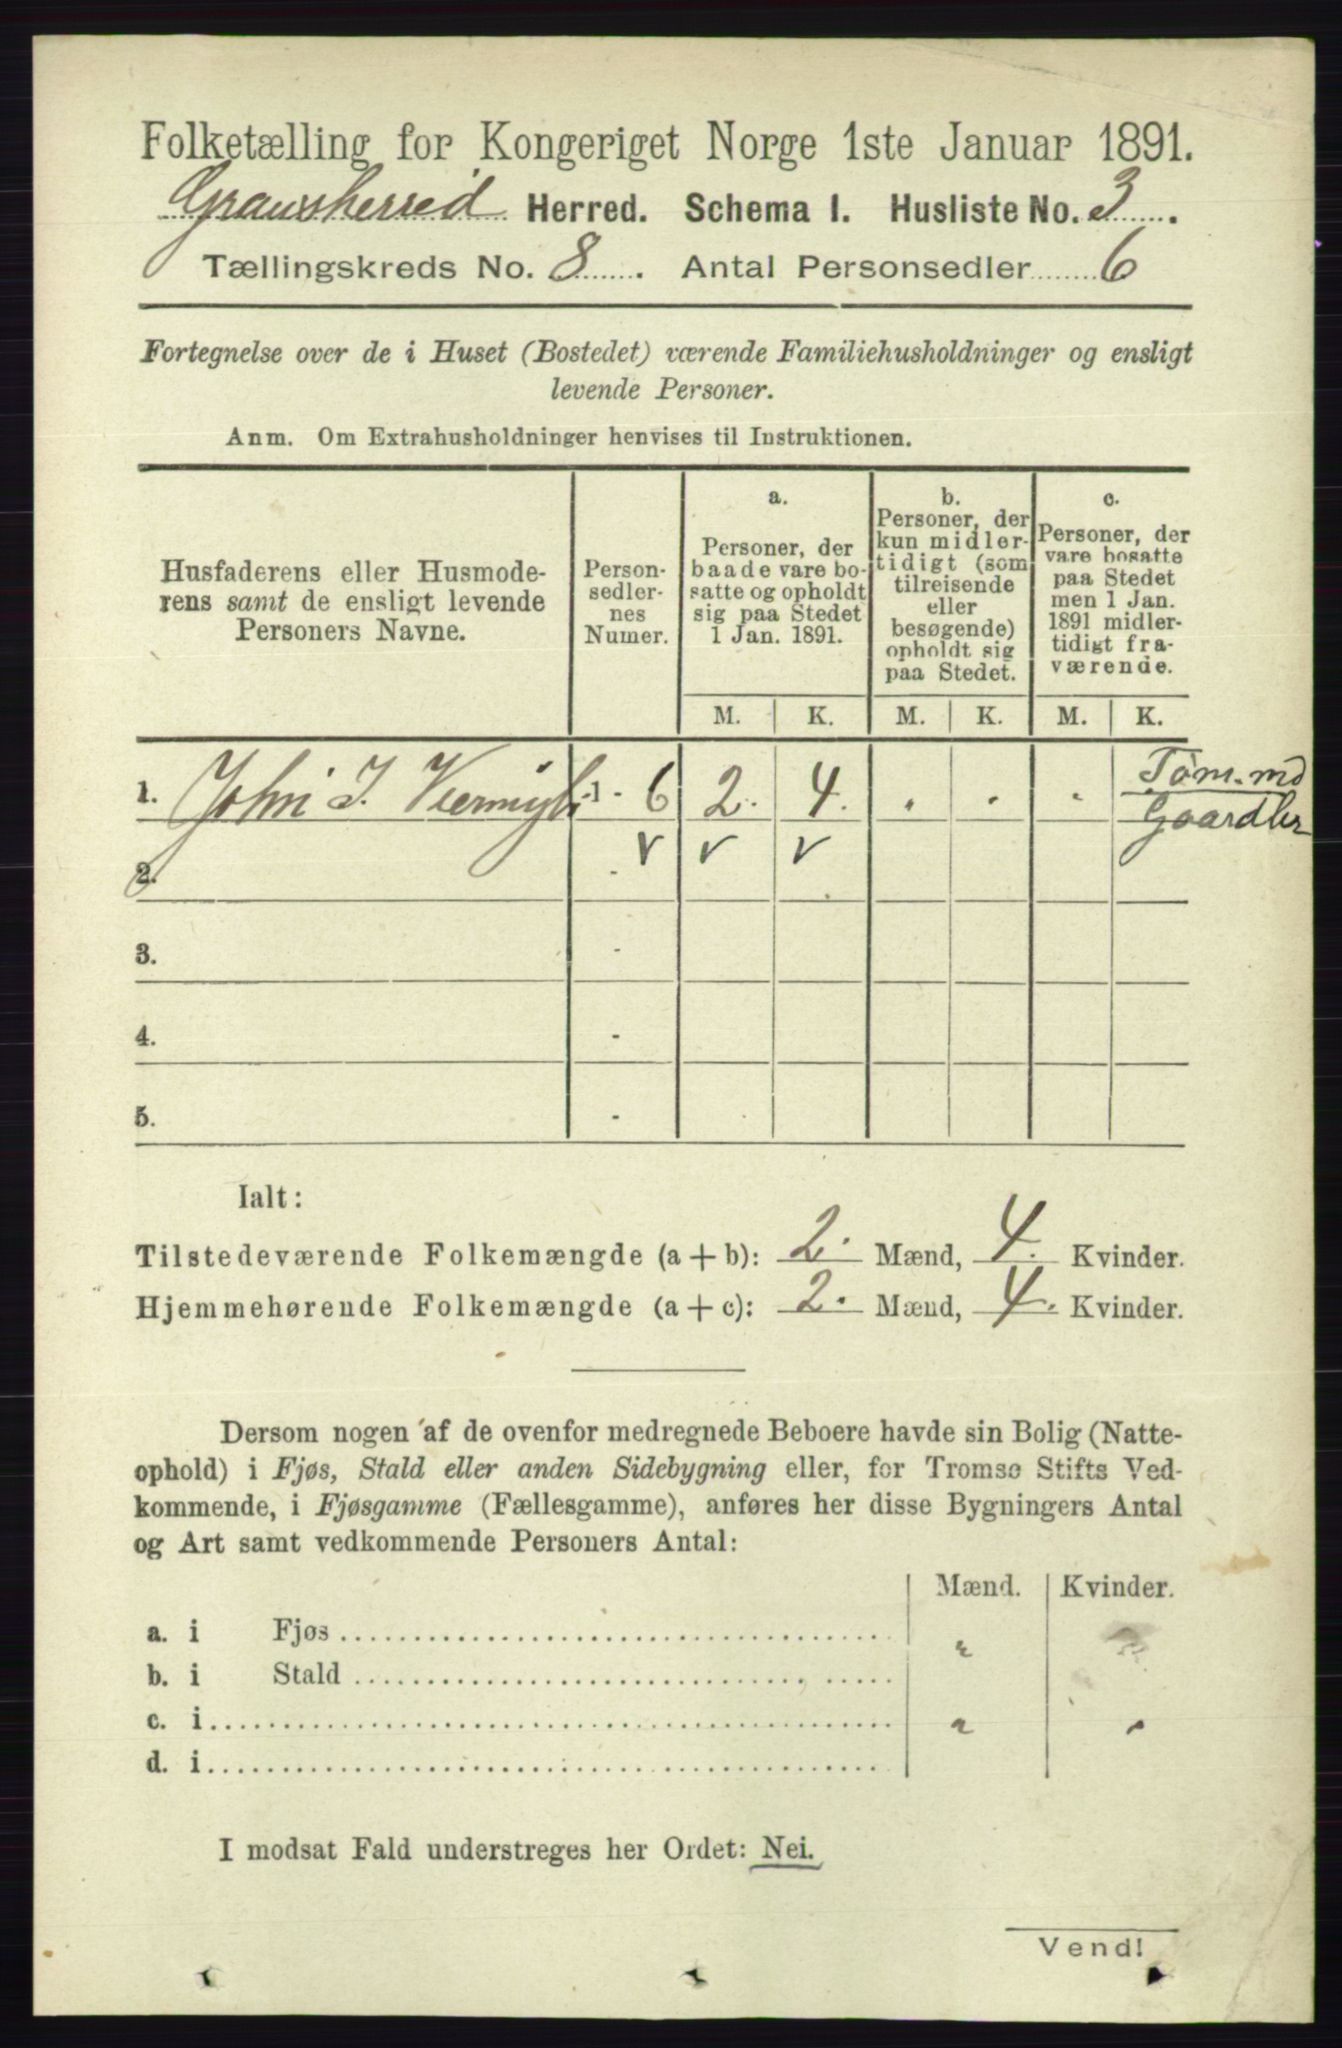 Folketælling for Kongeriget Norge 1ste Januar 1891.
Gransherred Herred. Schema I. Husliste No. 3.
Tællingskreds No. 8. Antal Personsedler 6
Fortegnelse over de i Huset (Bostedet) værende Familiehusholdninger og ensligt
levende Personer.
Anm. Om Extrahusholdninger henvises til Instruktionen.
Husfaderens eller Husmode-
rens samt de ensligt levende
Personers Navne.
Person-
sedler-
nes
Numer.
a.
Personer, der
baade vare bo-
satte og opholdt
sig paa Stedet
1 Jan. 1891.
b.
Personer, der
kun midler-
tidigt (som
tilreisende
eller
besøgende)
opholdt sig
paa Stedet.
c.
Personer, der
vare bosatte
paa Stedet
men 1 Jan.
1891 midler-
tidigt fra-
værende.
M. K. M. K. M. K.
1. John J. 1 - 6 2. 4. Tøm.md
Gaardbr
2. - v v v
3. -
4. -
5. -
Ialt:
Tilstedeværende Folkemængde (a + b): 2. Mænd, 4. Kvinder.
Hjemmehørende Folkemængde (a + c): 2. Mænd, 4. Kvinder.
Dersom nogen af de ovenfor medregnede Beboere havde sin Bolig (Natte-
ophold) i Fjøs, Stald eller anden Sidebygning eller, for Tromsø Stifts Ved-
kommende, i Fjøsgamme (Fællesgamme), anføres her disse Bygningers Antal
og Art samt vedkommende Personers Antal:
Mænd. Kvinder.
a. i Fjøs
b. i Stald
c. i
d. i
I modsat Fald understreges her Ordet: Nei.
Vend!